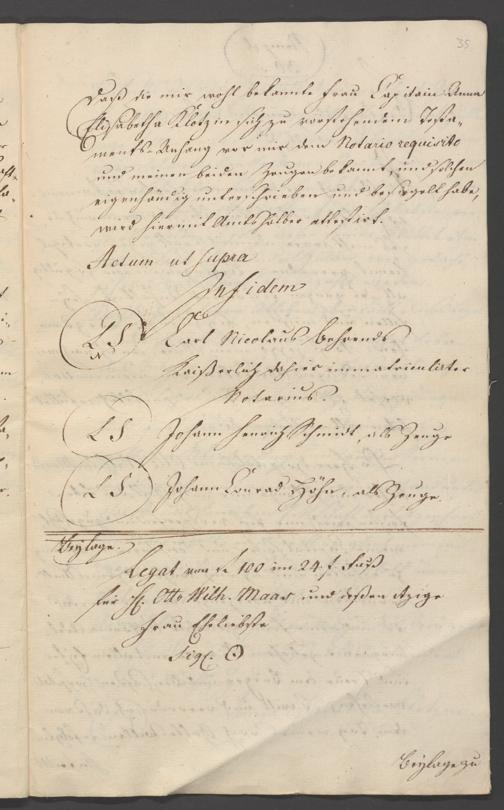 35
Daß die mir wohl bekannte Frau Capitain Anna
Elisabetha Klotzin sich zu vorstehendem Testa-
ments-Anhang vor mir dem Notario requisito
und meinen beiden Zeugen bekannt, und solchen
eigenhändig unterschrieben und besiegelt habe,
wird hiermit Amtshalber attestirt.
Actum ut supra
In fidem
LS Carl Nicolaus Behrends
Kaißerlich dahier immatriculirter
Notarius.
LS Johann Henrich Schmidt, als Zeuge
LS Johann Conrad Höhn, als Zeuge
Beylage.
Legat von 100 im 24 f. Fuß
für H. Otto Wilh. Maas und deßen
Frau Eheliebste
Sigl. ⊙
Beylage zu